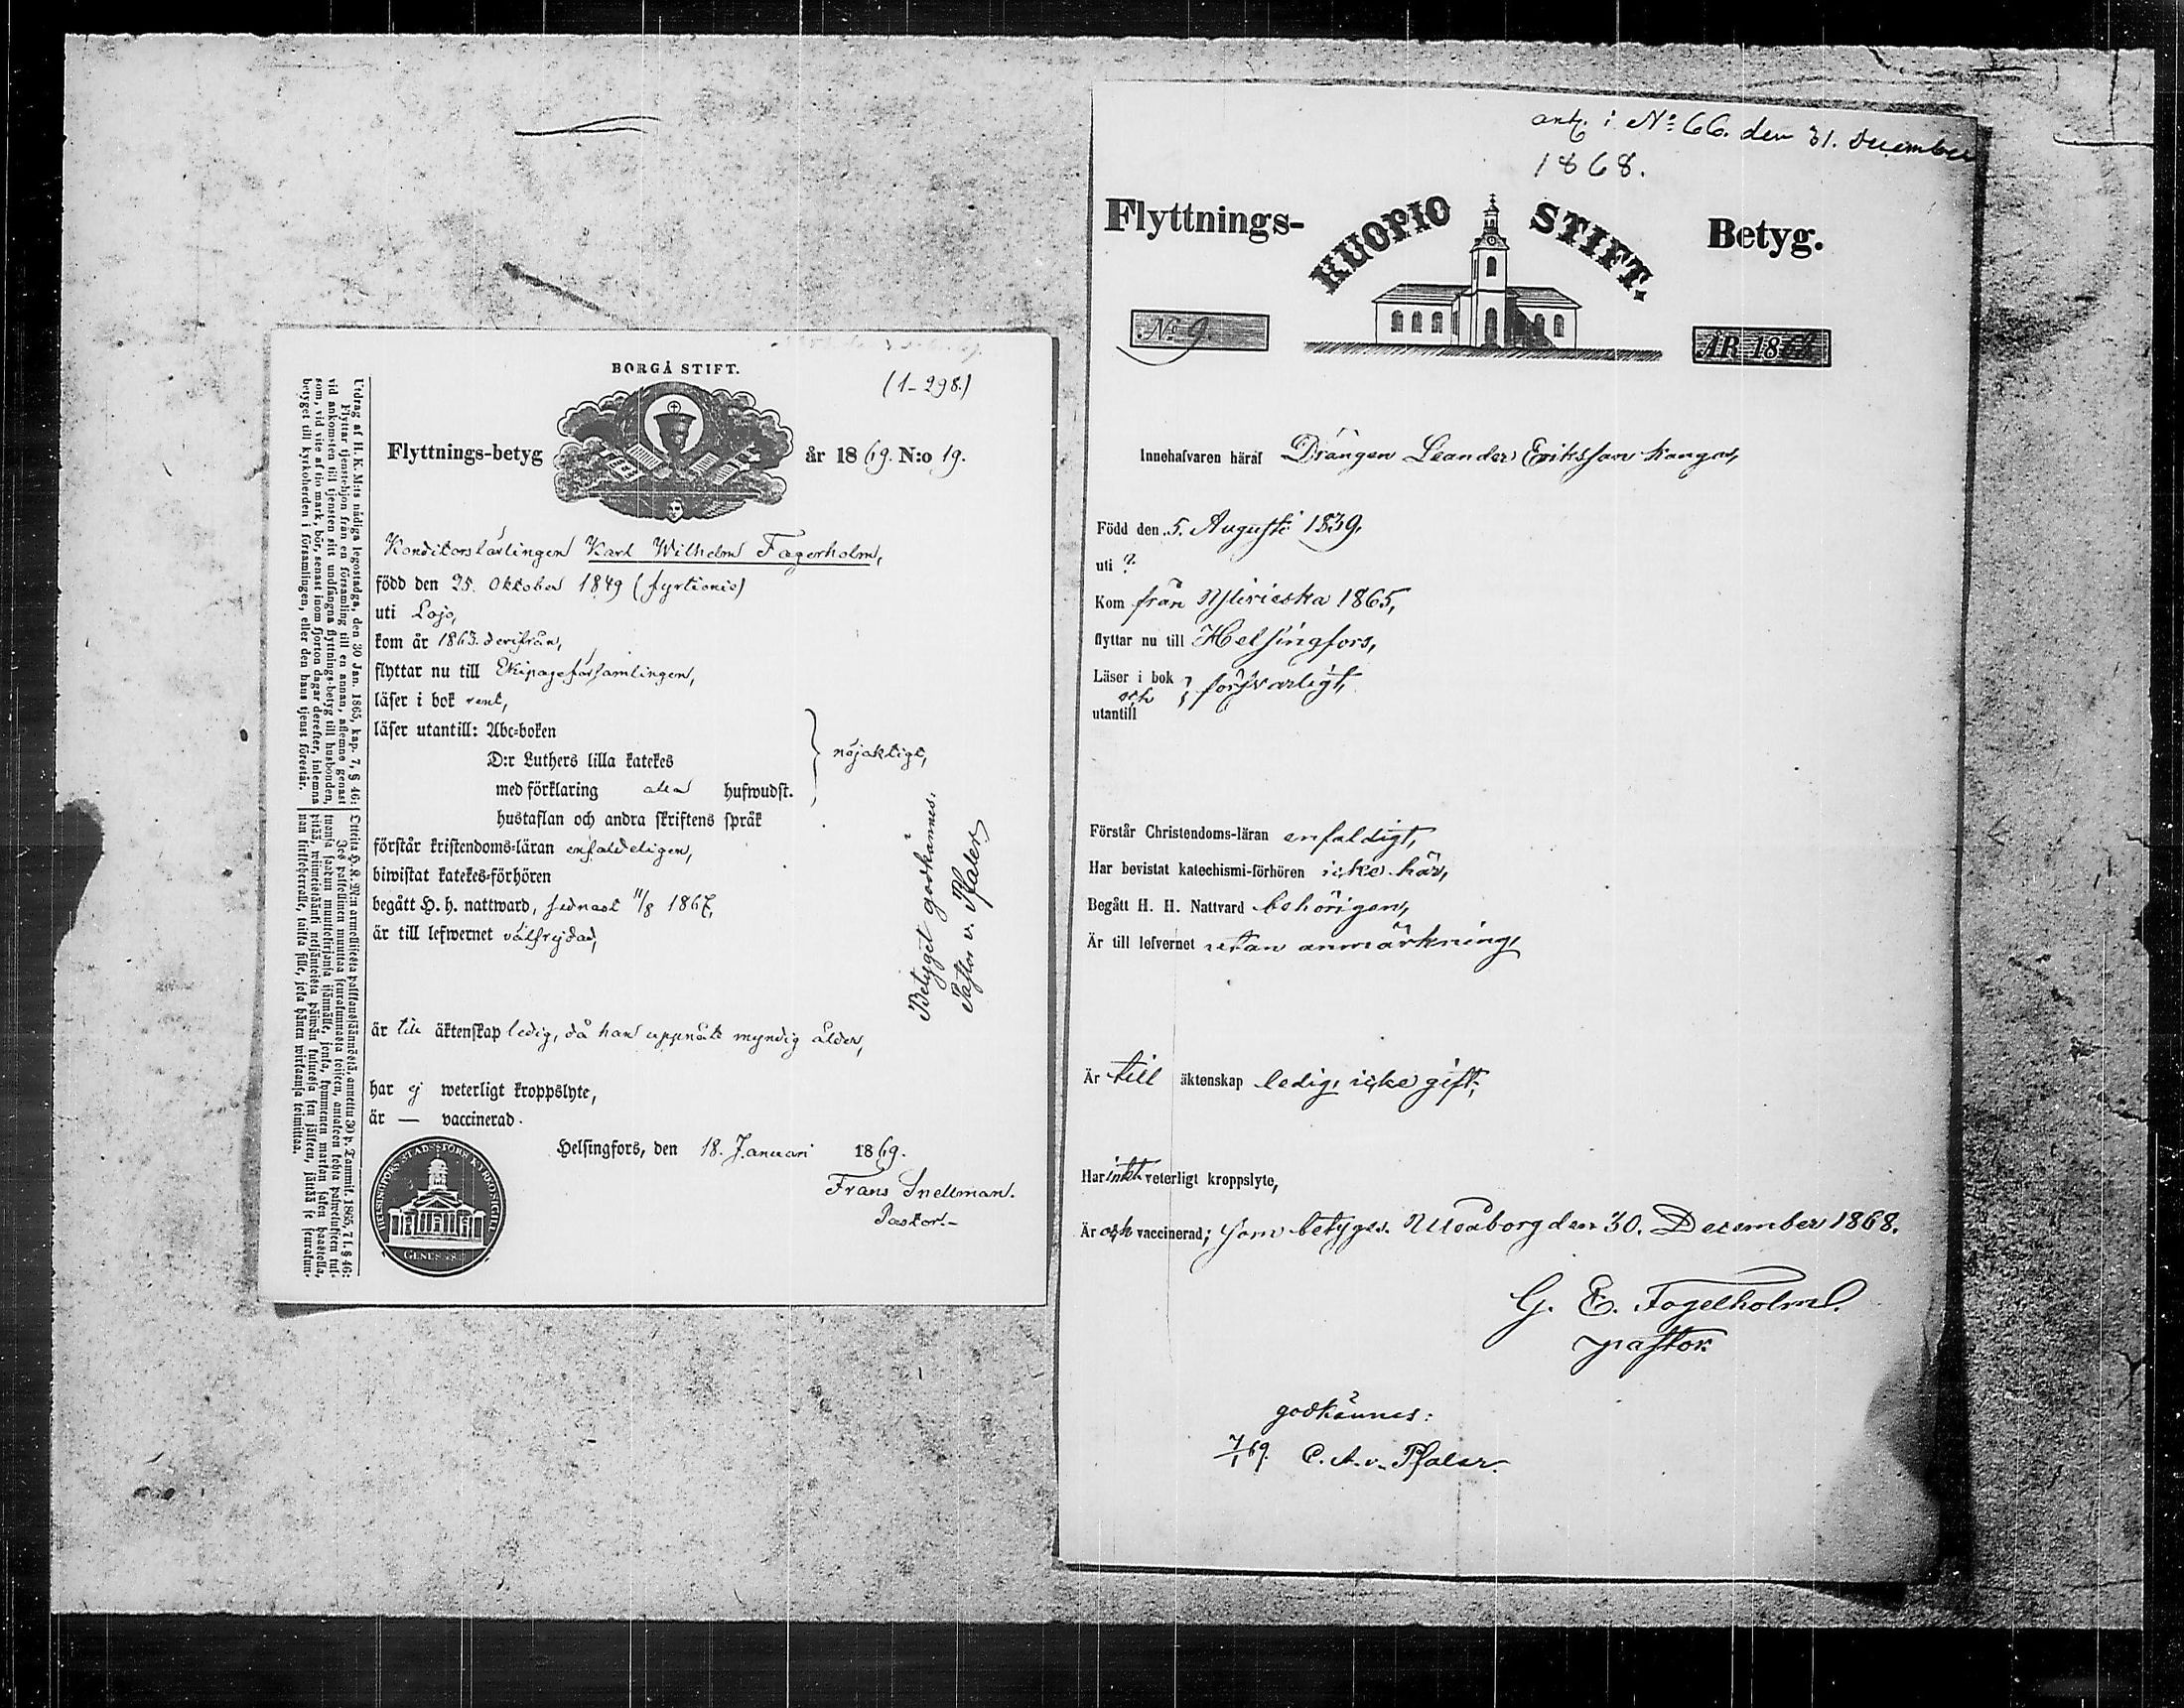 BORGÅ STIFT.
(1-298.)
Flyttnings-betyg år 1869. N:o 19.
Konditorslärlingen Karl Wilhelm Fagerholm,
född den 25. Oktober 1849 (fyrtionio)
uti Lojo,
kom år 1863. derifrån,
flyttar nu till Ekipageförsamlingen,
läser i bok rent,
läser utantill: Abc-boken
D:r Luthers lilla katekes
med förklaring alla hufwudst.
hustaflan och andra skriftens språk
nöjaktigt,
förstår kristendoms-läran enfaldeligen,
biwistat katekes-förhören
begått H. h. nattward, sednast 11/8 1867,
är till lefwernet välfrejdad,
är till äktenskap ledig, då han uppnått myndig ålder,
har ej weterligt kroppslyte,
är — vaccinerad.
Helsingfors, den 18. Januari 1869.
Frans Snellman.
Pastor.-
Betyget godkännes:
Pastor v. Pfaler
Utdrag af H. K. M:ts nådiga legostadga, den 30 Jan. 1865, kap. 7, § 46:
Flyttar tjenstehjon från en församling till en annan, aflemne genast
vid ankomsten till tjensten sitt undfångna flyttnings-betyg till husbonden,
som, vid vite af tio mark, bör, senast inom fjorton dagar derefter, inlemna
betyget till kyrkoherden i församlingen, eller den hans tjenst förestår.
Otteita H. K. M:n armollisesta palkkaussäännöstä, annettu 30 p. Tammik. 1865, 7 l. § 46:
GENESIS
ant. i No: 66. den 31. December
1868.
Flyttnings- KUOPIO STIFT. Betyg.
No 9.
ÅR 1868
Innehafvaren häraf Drängen Leander Eriksson Kangas,
Född den 5. Augusti 1839,
uti ?
Kom från Ylivieska 1865,
flyttar nu till Helsingfors,
Läser i bok
och
utantill
försvarligt,
Förstår Christendoms-läran enfaldigt,
Har bevistat katechismi-förhören icke här,
Begått H. H. Nattvard behörigen,
Är till lefvernet utan anmärkning,
Är till äktenskap ledig, icke gift,
Har intet veterligt kroppslyte,
Är och vaccinerad; som betyges. Uleåborg den 30. December 1868.
G. E. Fogelholm.
pastor.
godkännes:
7/1 69. C. A. v. Pfaler.